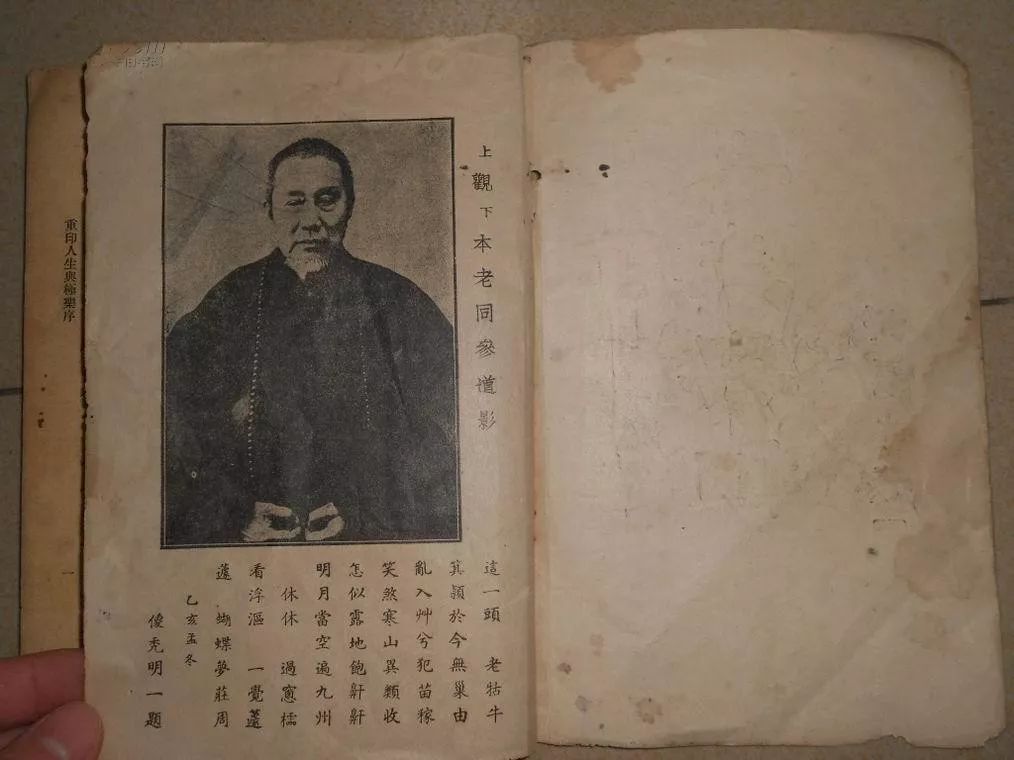 上觀下本老同參道影
這一頭　老牯牛
箕潁於今無巢由
亂入艸兮犯苗稼
笑煞寒山異類收
怎似露地飽齁齁
明月當空遍九州
休休　過窻櫺
看浮漚　一覺蘧
蘧　蝴蝶夢莊周
乙亥孟冬
儍禿明一題
重印人生與極樂序
一